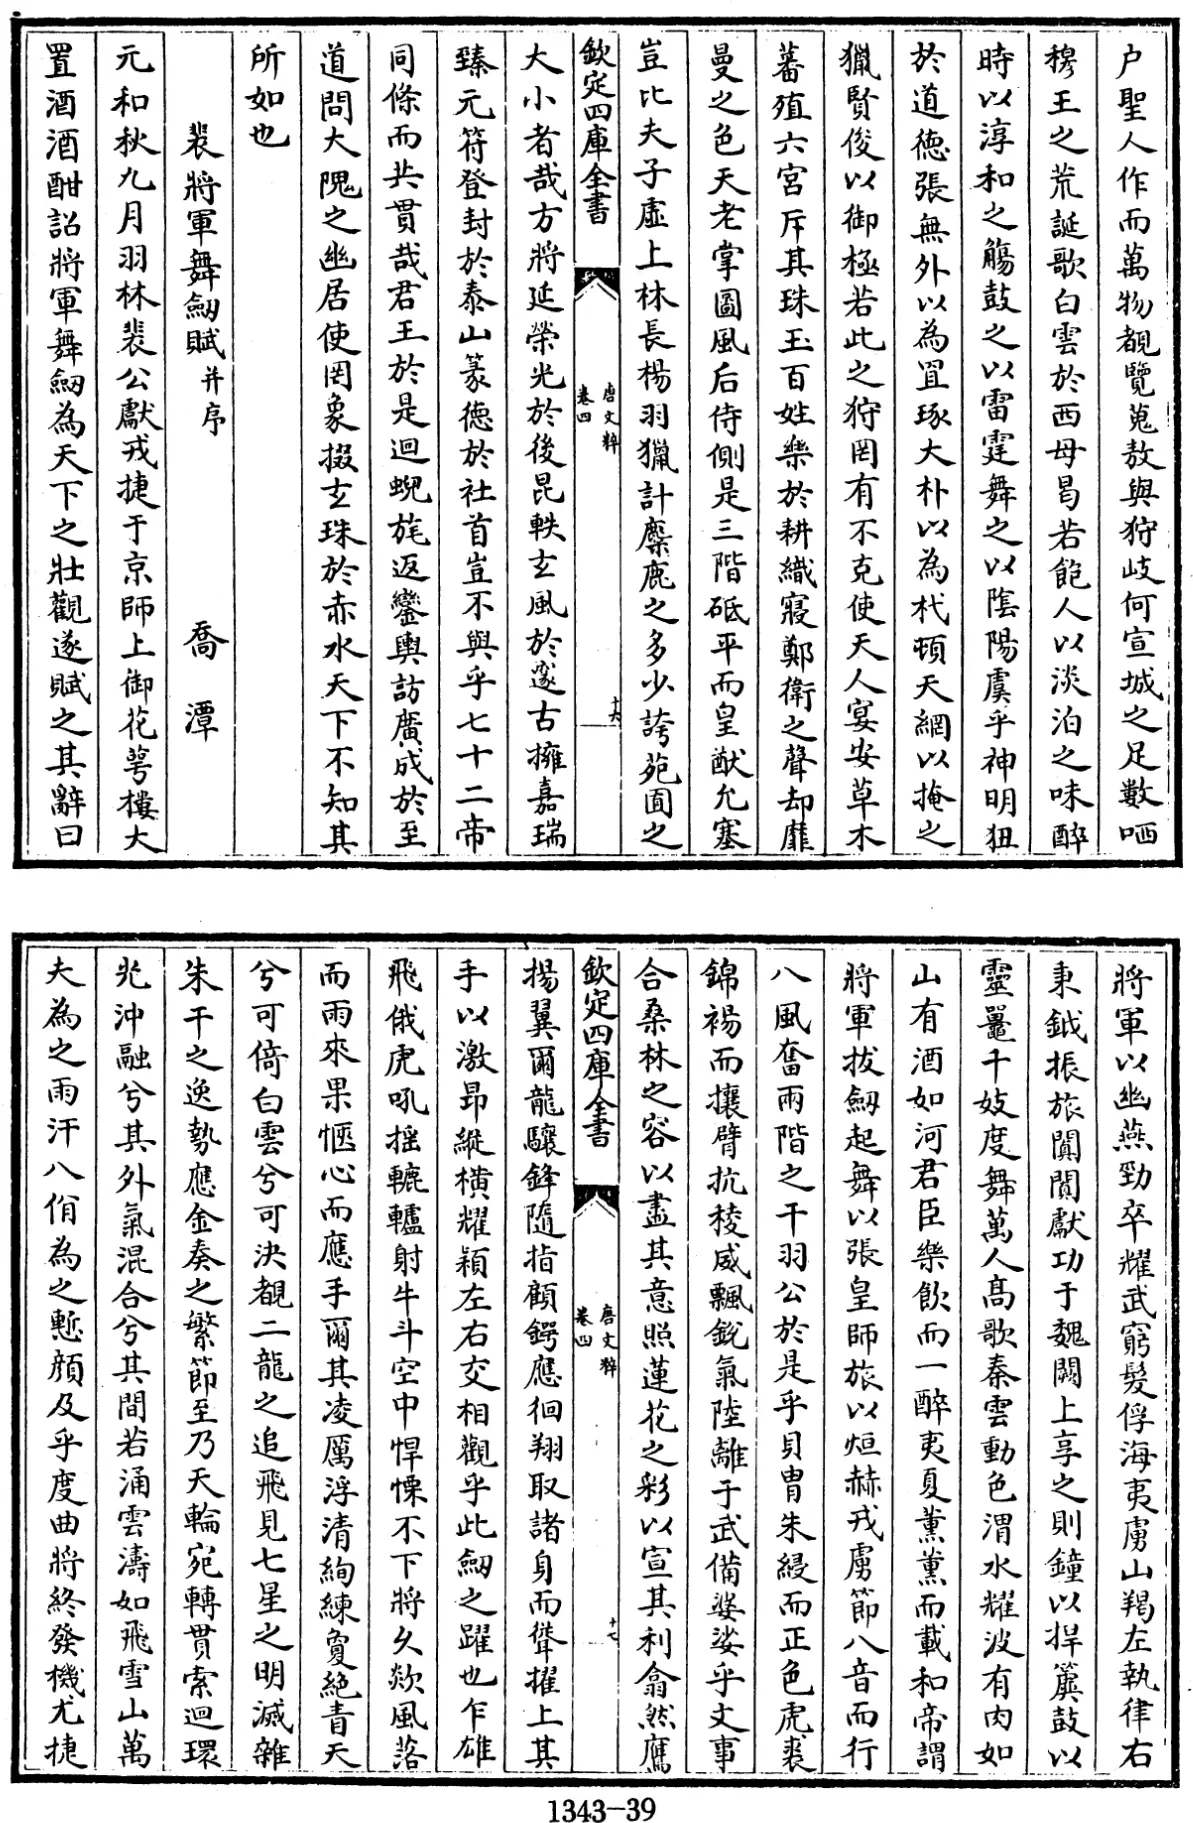 户聖人作而萬物覩覽蒐敖與狩岐何宣城之足數哂
穆王之荒誕歌白雲於西母曷若飽人以淡泊之味醉
時以淳和之觴鼓之以雷霆舞之以陰陽虞乎神明狃
於道德張無外以為罝琢大朴以為杙頓天網以掩之
獵賢俊以御極若此之狩罔有不克使天人宴安草木
蕃殖六宮斥其珠玉百姓樂於耕織寢鄭衛之聲却靡
曼之色天老掌圖風后侍側是三階砥平而皇猷允塞
豈比夫子虛上林長楊羽獵計麋鹿之多少誇苑囿之
欽定四庫全書
唐文粹
卷四
十六
大小者哉方將延榮光於後昆軼玄風於邃古擁嘉瑞
臻元符登封於泰山篆德於社首豈不與乎七十二帝
同條而共貫哉君王於是迴蜺旄返鑾輿訪廣成於至
道問大隗之幽居使罔象掇玄珠於赤水天下不知其
所如也
裴將軍舞劒賦并序 喬潭
元和秋九月羽林裴公獻戎捷于京師上御花萼樓大
置酒酒酣詔將軍舞劒為天下之壯觀遂賦之其辭曰
將軍以幽燕勁卒耀武窮髮俘海夷虜山羯左執律右
秉鉞振旅闐闐獻功于魏闕上享之則鐘以捍簴鼓以
靈鼉千妓度舞萬人髙歌秦雲動色渭水耀波有肉如
山有酒如河君臣樂飲而一醉夷夏薰薰而載和帝謂
將軍拔劒起舞以張皇師旅以烜赫戎虜節八音而行
八風奮兩階之干羽公於是乎貝胄朱綅而正色虎裘
錦裼而攘臂抗稜威飄銳氣陸離于武備婆娑乎文事
合桑林之容以盡其意照蓮花之彩以宣其利翕然鷹
欽定四庫全書
唐文粹
卷四
十七
揚翼爾龍驤鋒隨指顧鍔應徊翔取諸身而聳擢上其
手以激昻縱橫耀穎左右交相觀乎此劒之躍也乍雄
飛俄虎吼揺轆轤射牛斗空中悍慄不下將久欻風落
而雨來果愜心而應手爾其凌厲浮清絢練敻絶青天
兮可倚白雲兮可決覩二龍之追飛見七星之明滅雜
朱干之逸勢應金奏之繁節至乃天輪宛轉貫索迴環
光沖融兮其外氣混合兮其間若涌雲濤如飛雪山萬
夫為之雨汗八佾為之慙顔及乎度曲將終發機尤捷
1343-39